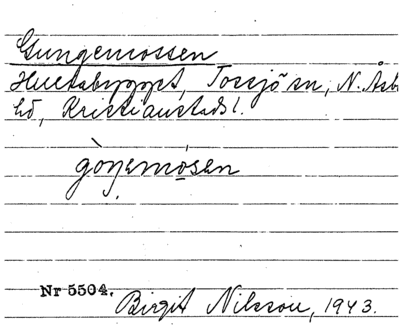 Gungemossen
Hultabygget, Tossjö sn, N. Åsb
hd, Kristianstads l.
gòŋemósen
Nr 5504.
Birgit Nilsson, 1943.